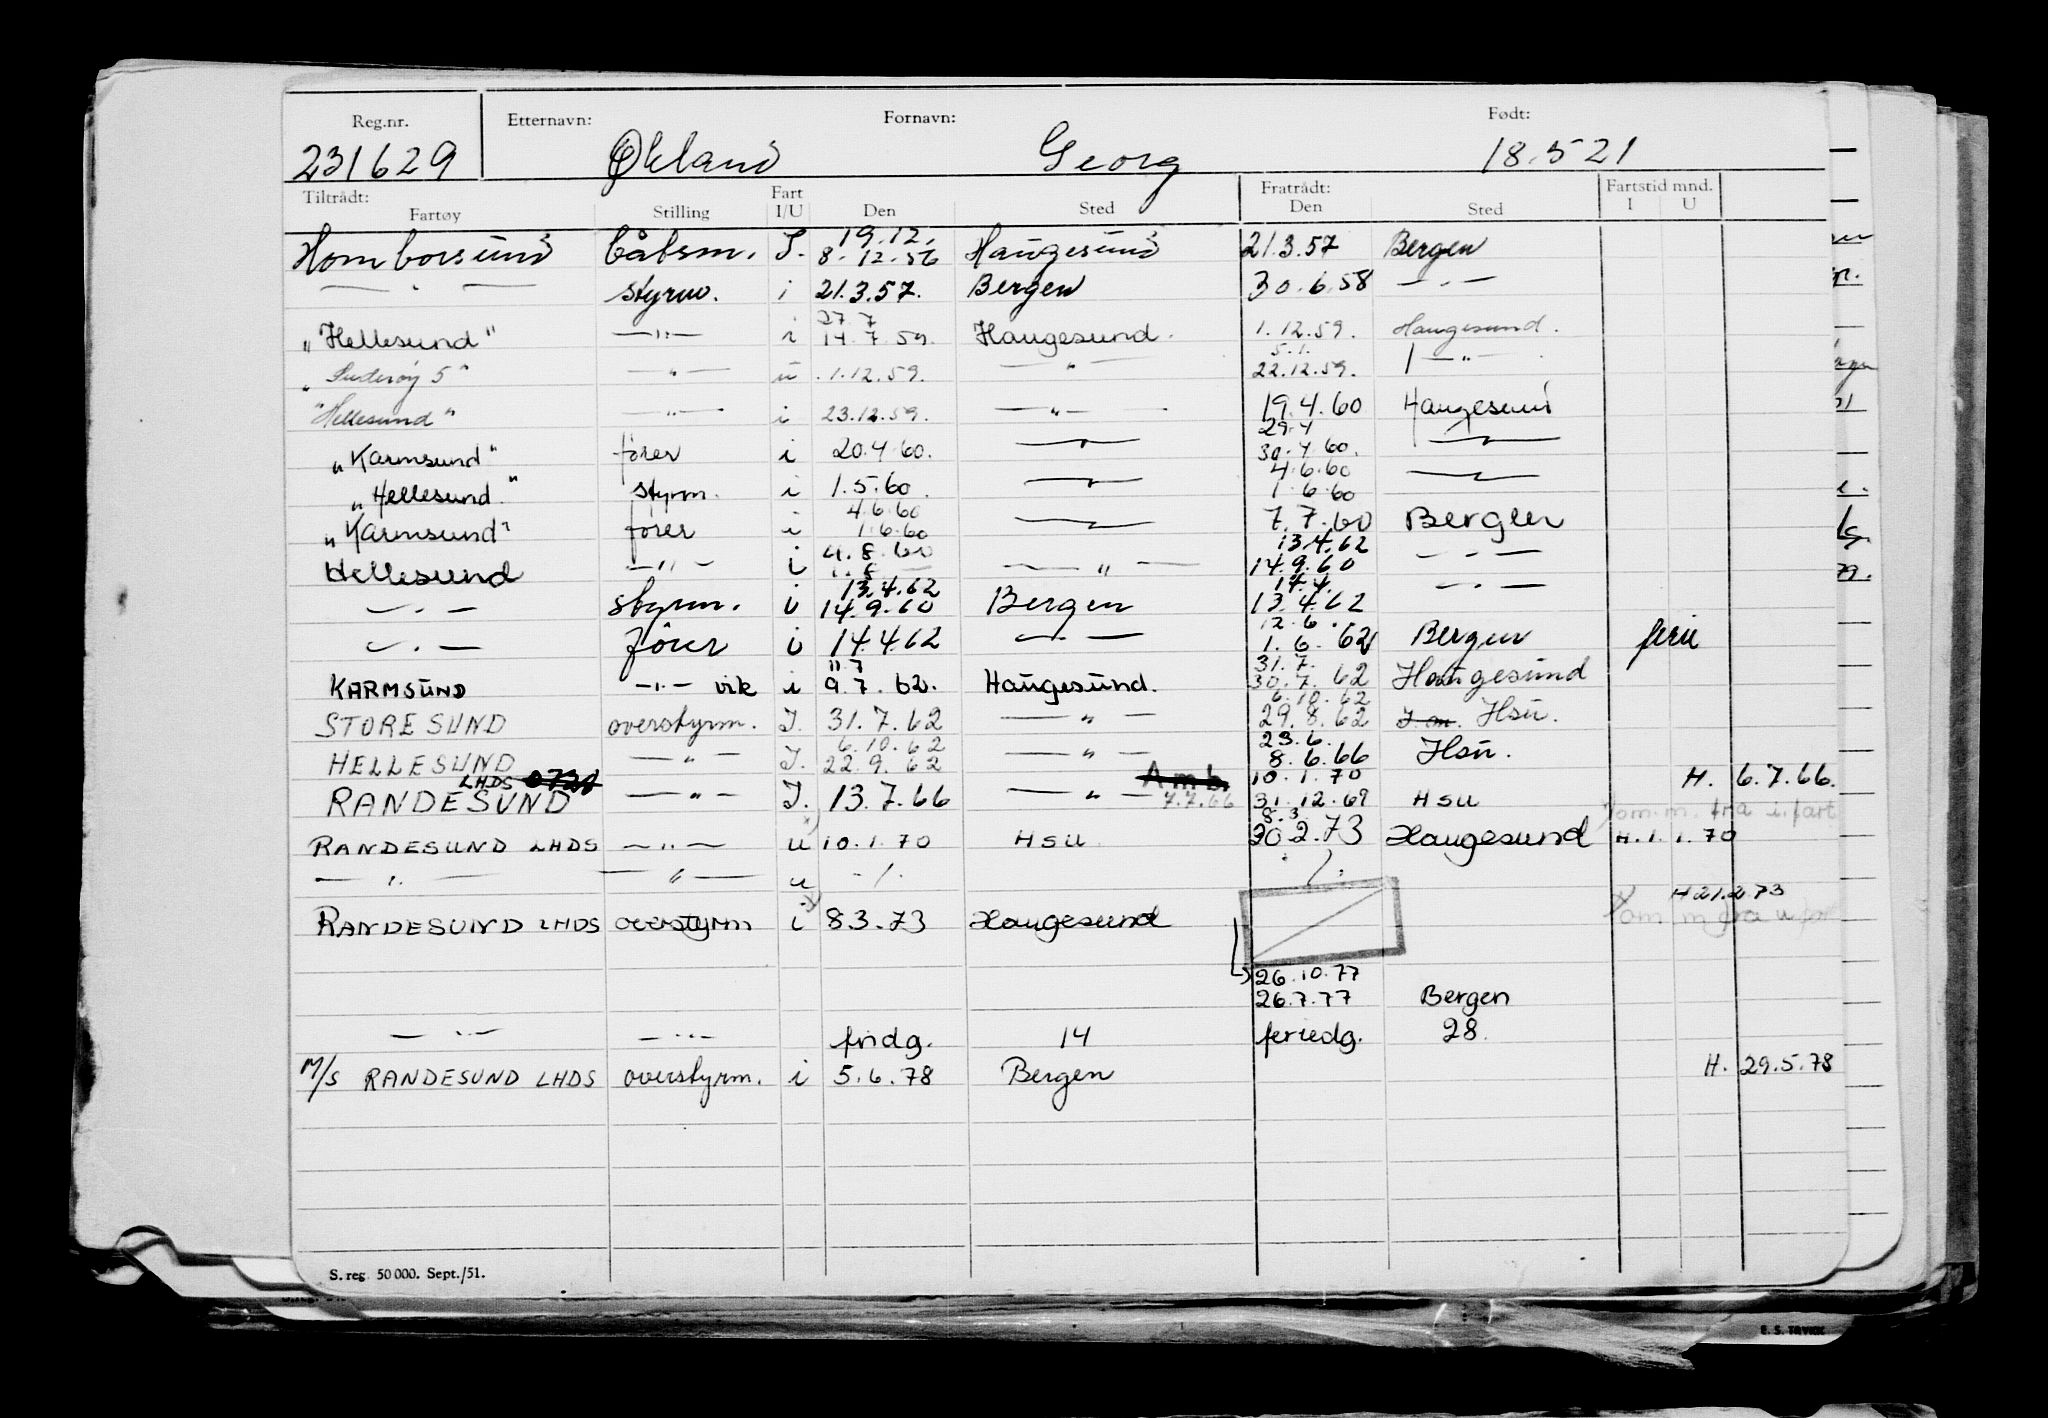 Reg.nr. Etternavn: Fornavn: Født:
231629 Økland Georg 18.5 21
Tiltrådt: Fart Fratrådt: Fartstid mnd.
Fartøy Stilling I/U Den Sted Den Sted I U
19.12.
Homborsund båtsm. I. 8.12.56 Haugesund 21.3.57 Bergen
— . — styrm. i 21.3.57. Bergen 30.6.58 — . —
27.7
„Hellesund" —„— i 14.7.59. Haugesund. 1.12.59. Haugesund.
5.1.
„Suderøy 5" —„— u .1.12.59. —„— 22.12.59. —„—
"Hellesund" —„— i 23.12.59. —„— 19.4.60 Haugesund
29.4
„Karmsund" fører i 20.4.60. —„— 30.4.60. —„—
4.6.60
„Hellesund" styrm. i 1.5.60. —„— 1.6.60 —„—
4.6.60
„Karmsund" fører i 1.6.60 —„— 7.7.60 Bergen
13.4.62
Hellesund —„— i 4.8.60 —„— 14.9.60 — . —
13.4.62 14.4.
— . — styrm. i 14.9.60 Bergen 13.4.62 — . —
12.6.
— . — fører i 14.4.62 — . — 1.6.62 Bergen ferie
11.7 31.7.
KARMSUND —„— vik i 9.7.62. Haugesund. 30.7.62 Haugesund
6.10.62
STORESUND overstyrm. I. 31.7.62 —„— 29.8.62 Hsu.
6.10.62 23.6.
HELLESUND —„— I. 22.9.62 —„— 8.6.66 Hsu.
LHDS A m b. 10.1.70 H. 6.7.66.
RANDESUND —„— I. 13.7.66 —„— 7.7.66 31.12.69 HSU
8.3 fra i.fart
RANDESUND LHDS —„— u 10.1.70 HSU 20.2.73 Haugesund H. 1.1.70
— „ — —„— u -/.
H 21.2.73
RANDESUND LHDS overstyrm i 8.3.73 Haugesund
26.10.77
26.7.77 Bergen
— „ — —„— fridg. 14 feriedg. 28.
M/S RANDESUND LHDS overstyrm. i 5.6.78 Bergen H. 29.5.78
S. reg. 50 000. Sept./51.
E. S. TRYKK